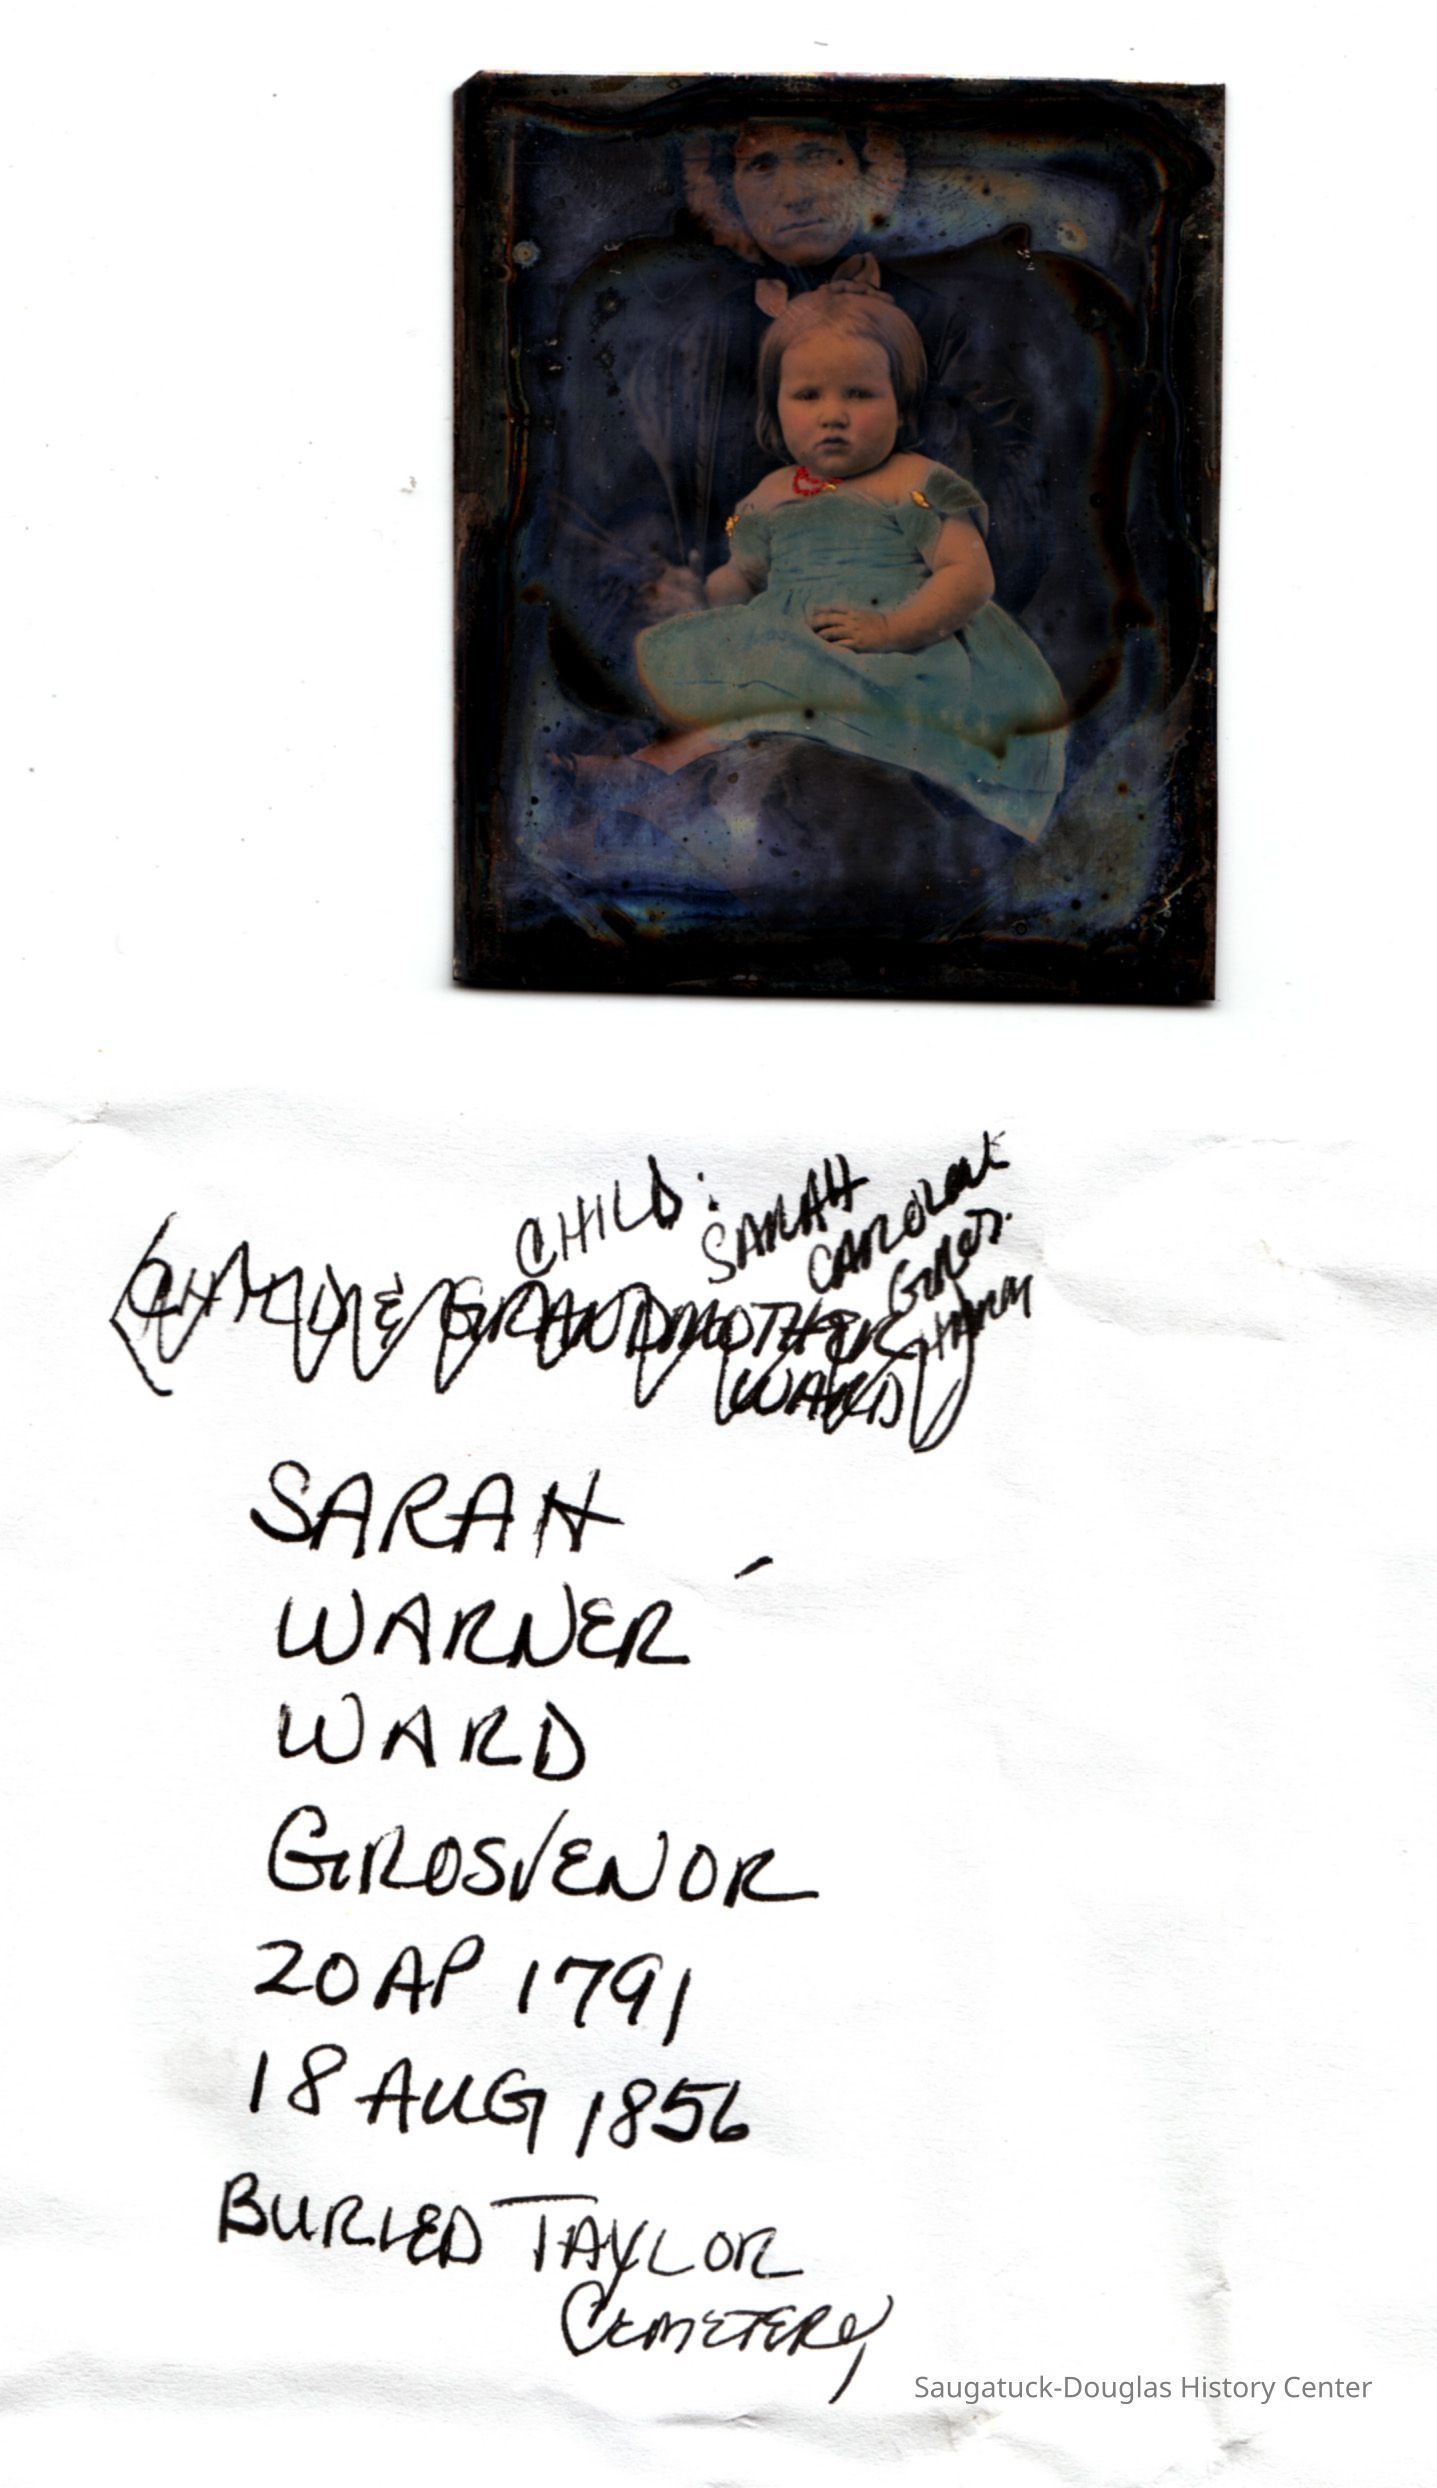 CHILD:
SARAH
CAROLINE
GROS.
HAM
GRANDMOTHER
WARD)
SARAH
WARNER
WARD
GROSVENOR
20 AP 1791
18 AUG 1856
BURIED TAYLOR
CEMETERY
Saugatuck-Douglas History Center